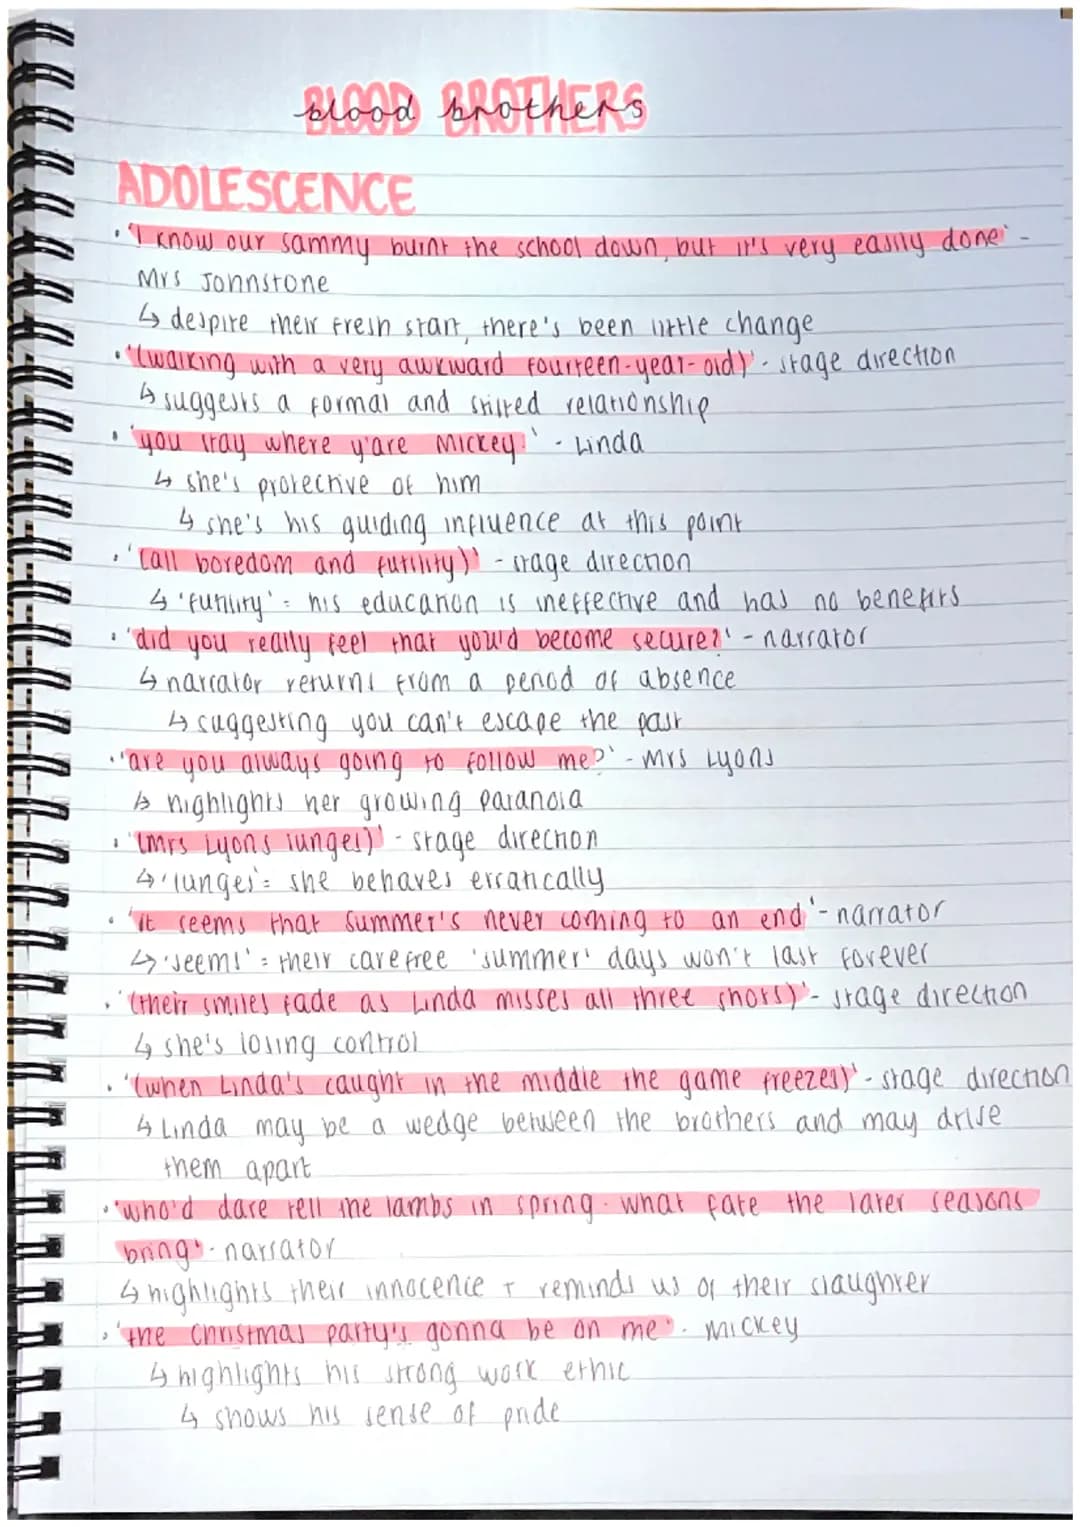 blood brothers
ADOLESCENCE
• 'I know our sammy burnt the school down, but it's very easily done' -
Mrs Johnstone
↳ despite their fresh start, there's been little change
• '(walking with a very awkward fourteen-year-old)' - stage direction
↳ suggests a formal and stilted relationship
• 'you stay where y'are Mickey.' - Linda
↳ she's protective of him
↳ she's his guiding influence at this point
• '(all boredom and futility)' - stage direction
↳ 'futility' = his education is ineffective and has no benefits
• 'did you really feel that you'd become secure?' - narrator
↳ narrator returns from a period of absence
↳ suggesting you can't escape the past
• 'are you always going to follow me?' - Mrs Lyons
↳ highlights her growing paranoia
• '(Mrs Lyons lunges)' - stage direction
↳ 'lunges' = she behaves erratically
• 'it seems that summer's never coming to an end' - narrator
↳ 'seems' = their carefree 'summer' days won't last forever
• '(their smiles fade as Linda misses all three shots)' - stage direction
↳ she's losing control
• '(when Linda's caught in the middle the game freezes)' - stage direction
↳ Linda may be a wedge between the brothers and may drive
them apart
• 'who'd dare tell the lambs in spring. what fate the later seasons
bring' - narrator
↳ highlights their innocence + reminds us of their slaughter
• 'the Christmas party's gonna be on me' - Mickey
↳ highlights his strong work ethic
↳ shows his sense of pride